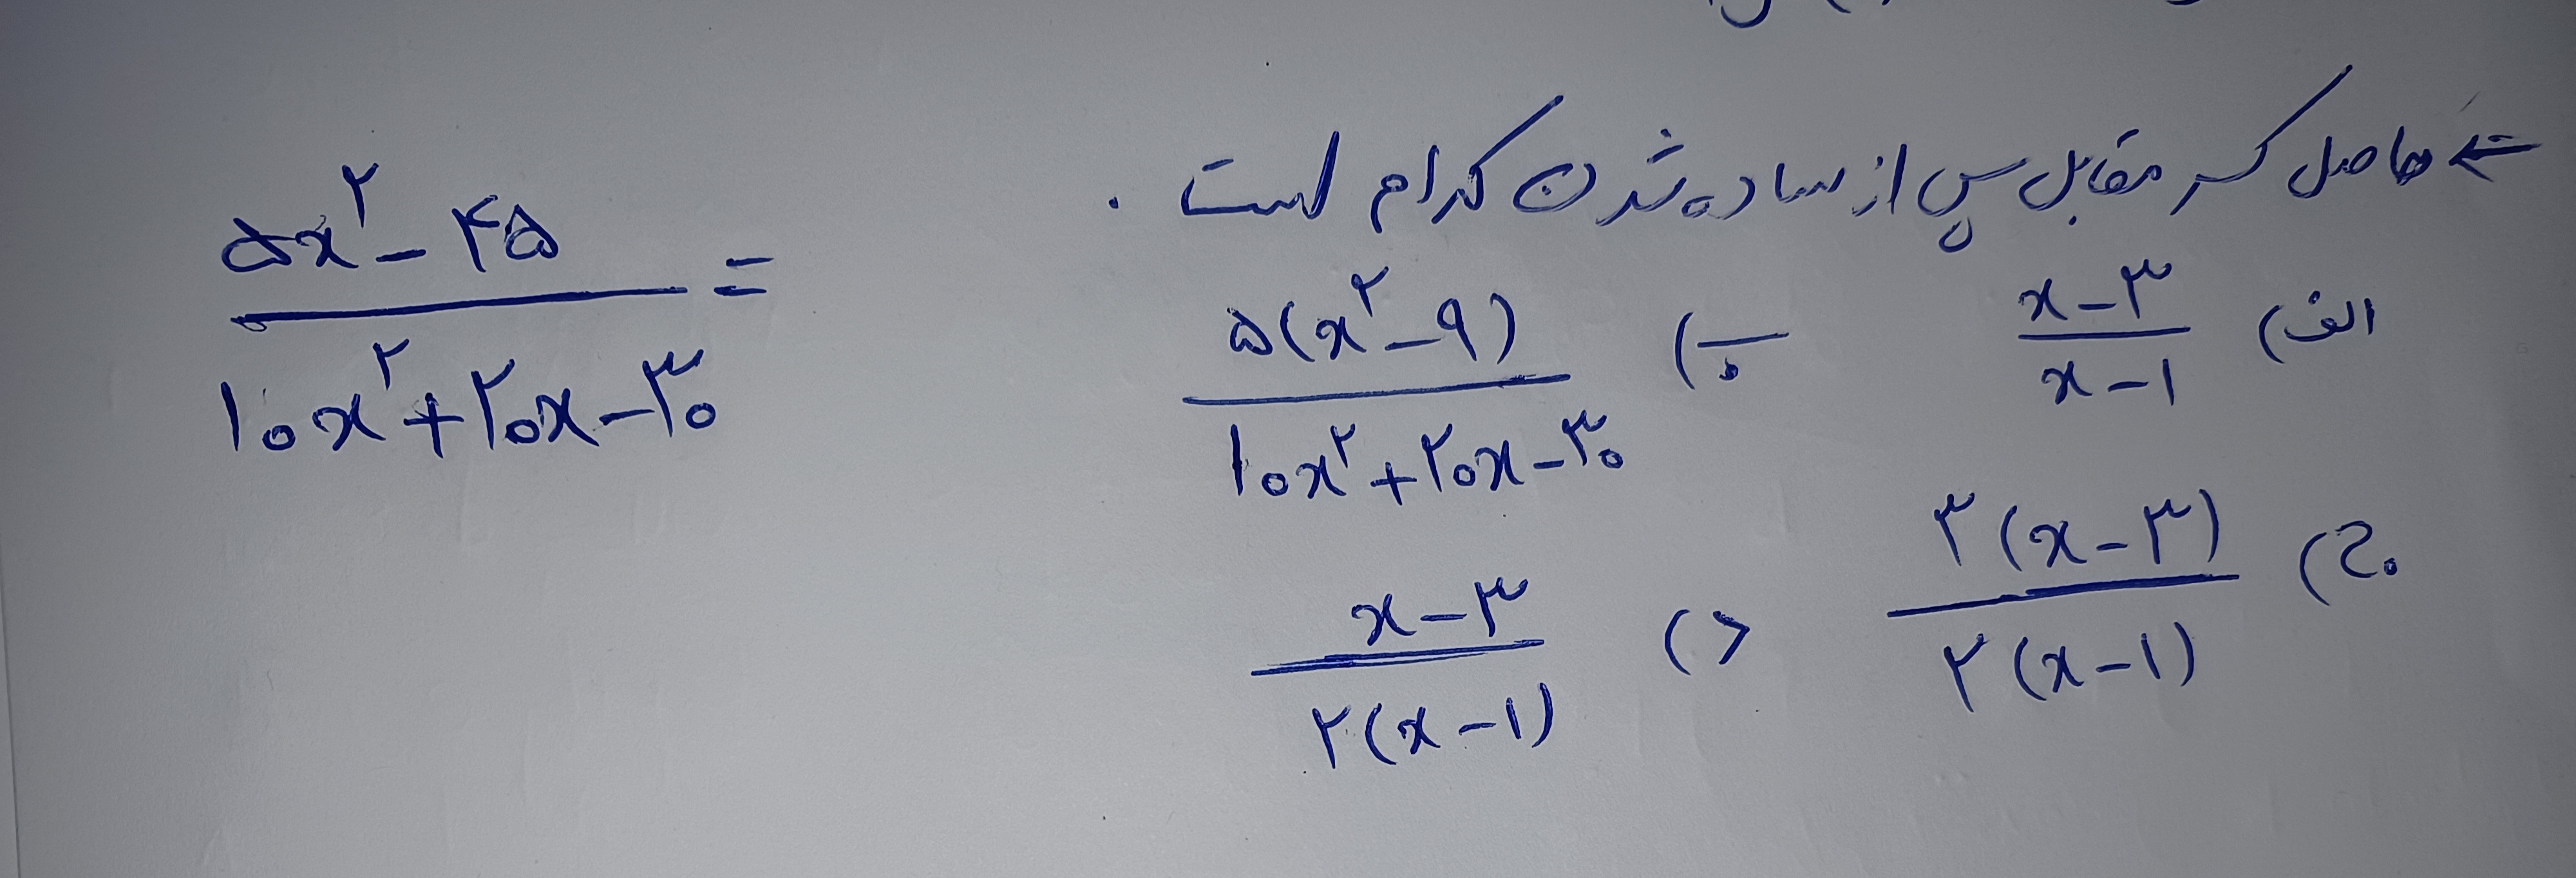 ← حاصل کسر مقابل پس از ساده شدن کدام است .
۵x^۲ - ۴۵ / ۱۰x^۲ + ۲۰x - ۳۰ =
الف) x - ۳ / x - ۱
ب) ۵(x^۲ - ۹) / ۱۰x^۲ + ۲۰x - ۳۰
ج) ۳(x - ۳) / ۲(x - ۱)
د) x - ۳ / ۲(x - ۱)